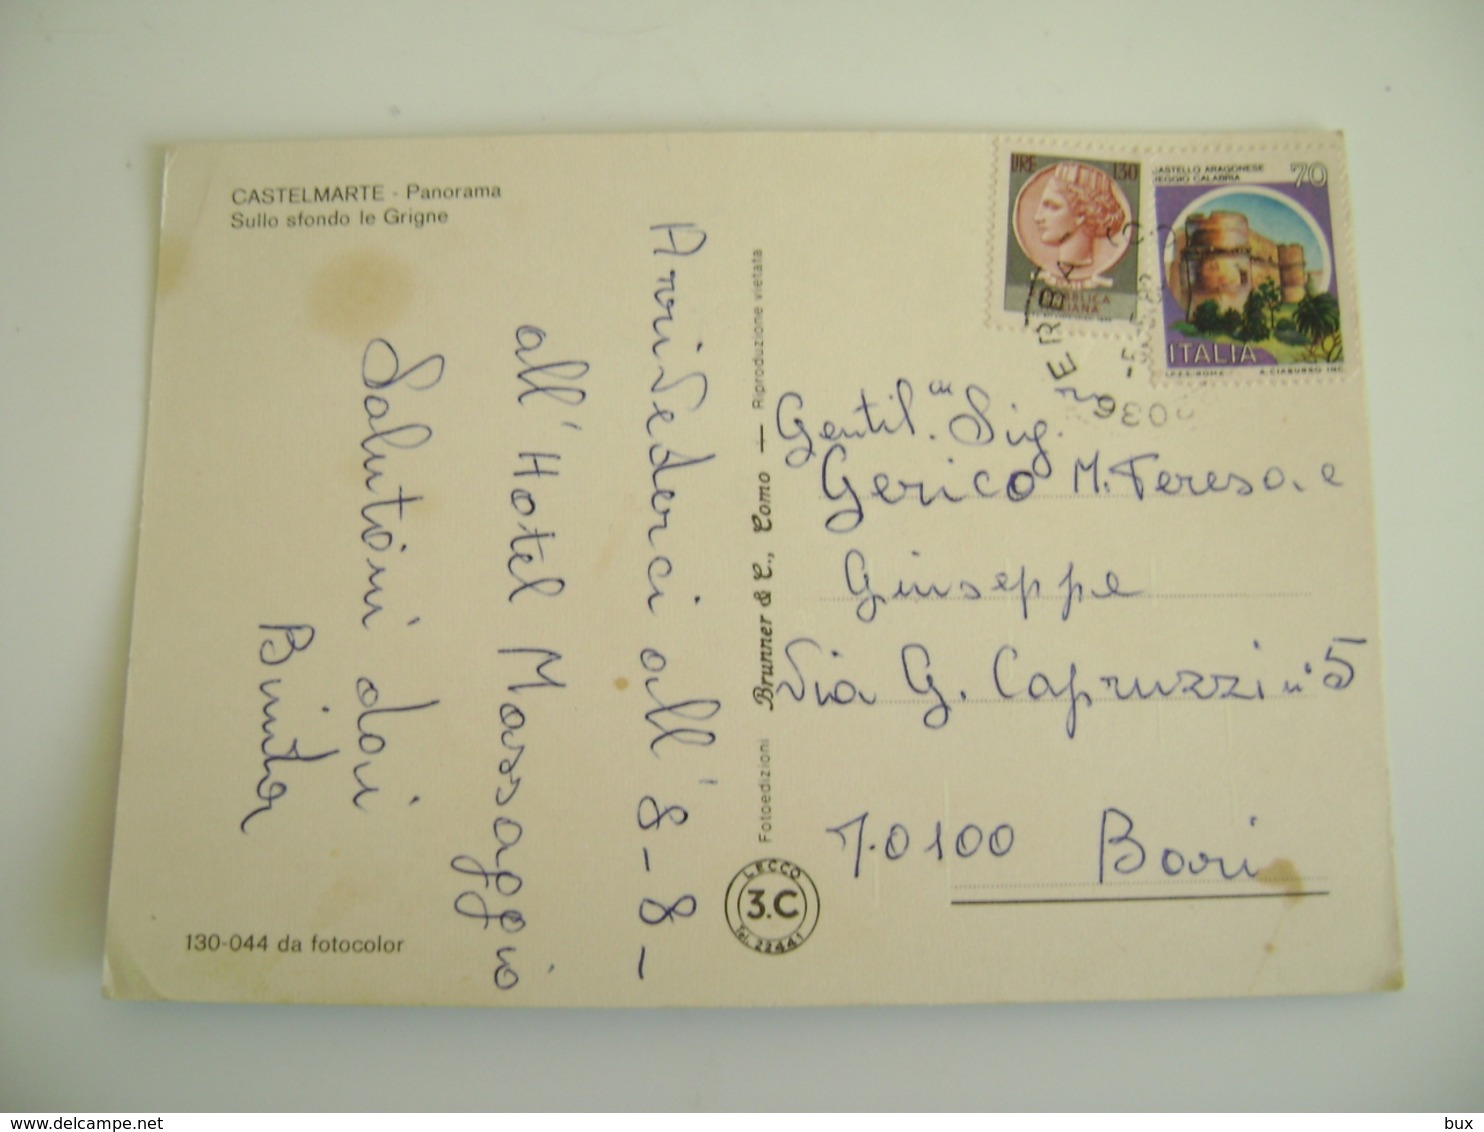 CASTELMARTE - Panorama
Sullo sfondo le Grigne
Arrivederci all'8-8-
all'Hotel Massaggio
Salutoni dai
130-044 da fotocolor
Fotoedizioni Brunner & C., Como — Riproduzione vietata
LECCO
3.C
Tel. 22441
LIRE 130
CASTELLO ARAGONESE
REGGIO CALABRIA
70
ITALIA
I.P.Z.S. ROMA A. CIABURRO INC.
ERBA
Gentil. Sig.
Gerico M. Teresa e
Giuseppe
Via G. Capruzzi n° 5
70100 Bari
bux